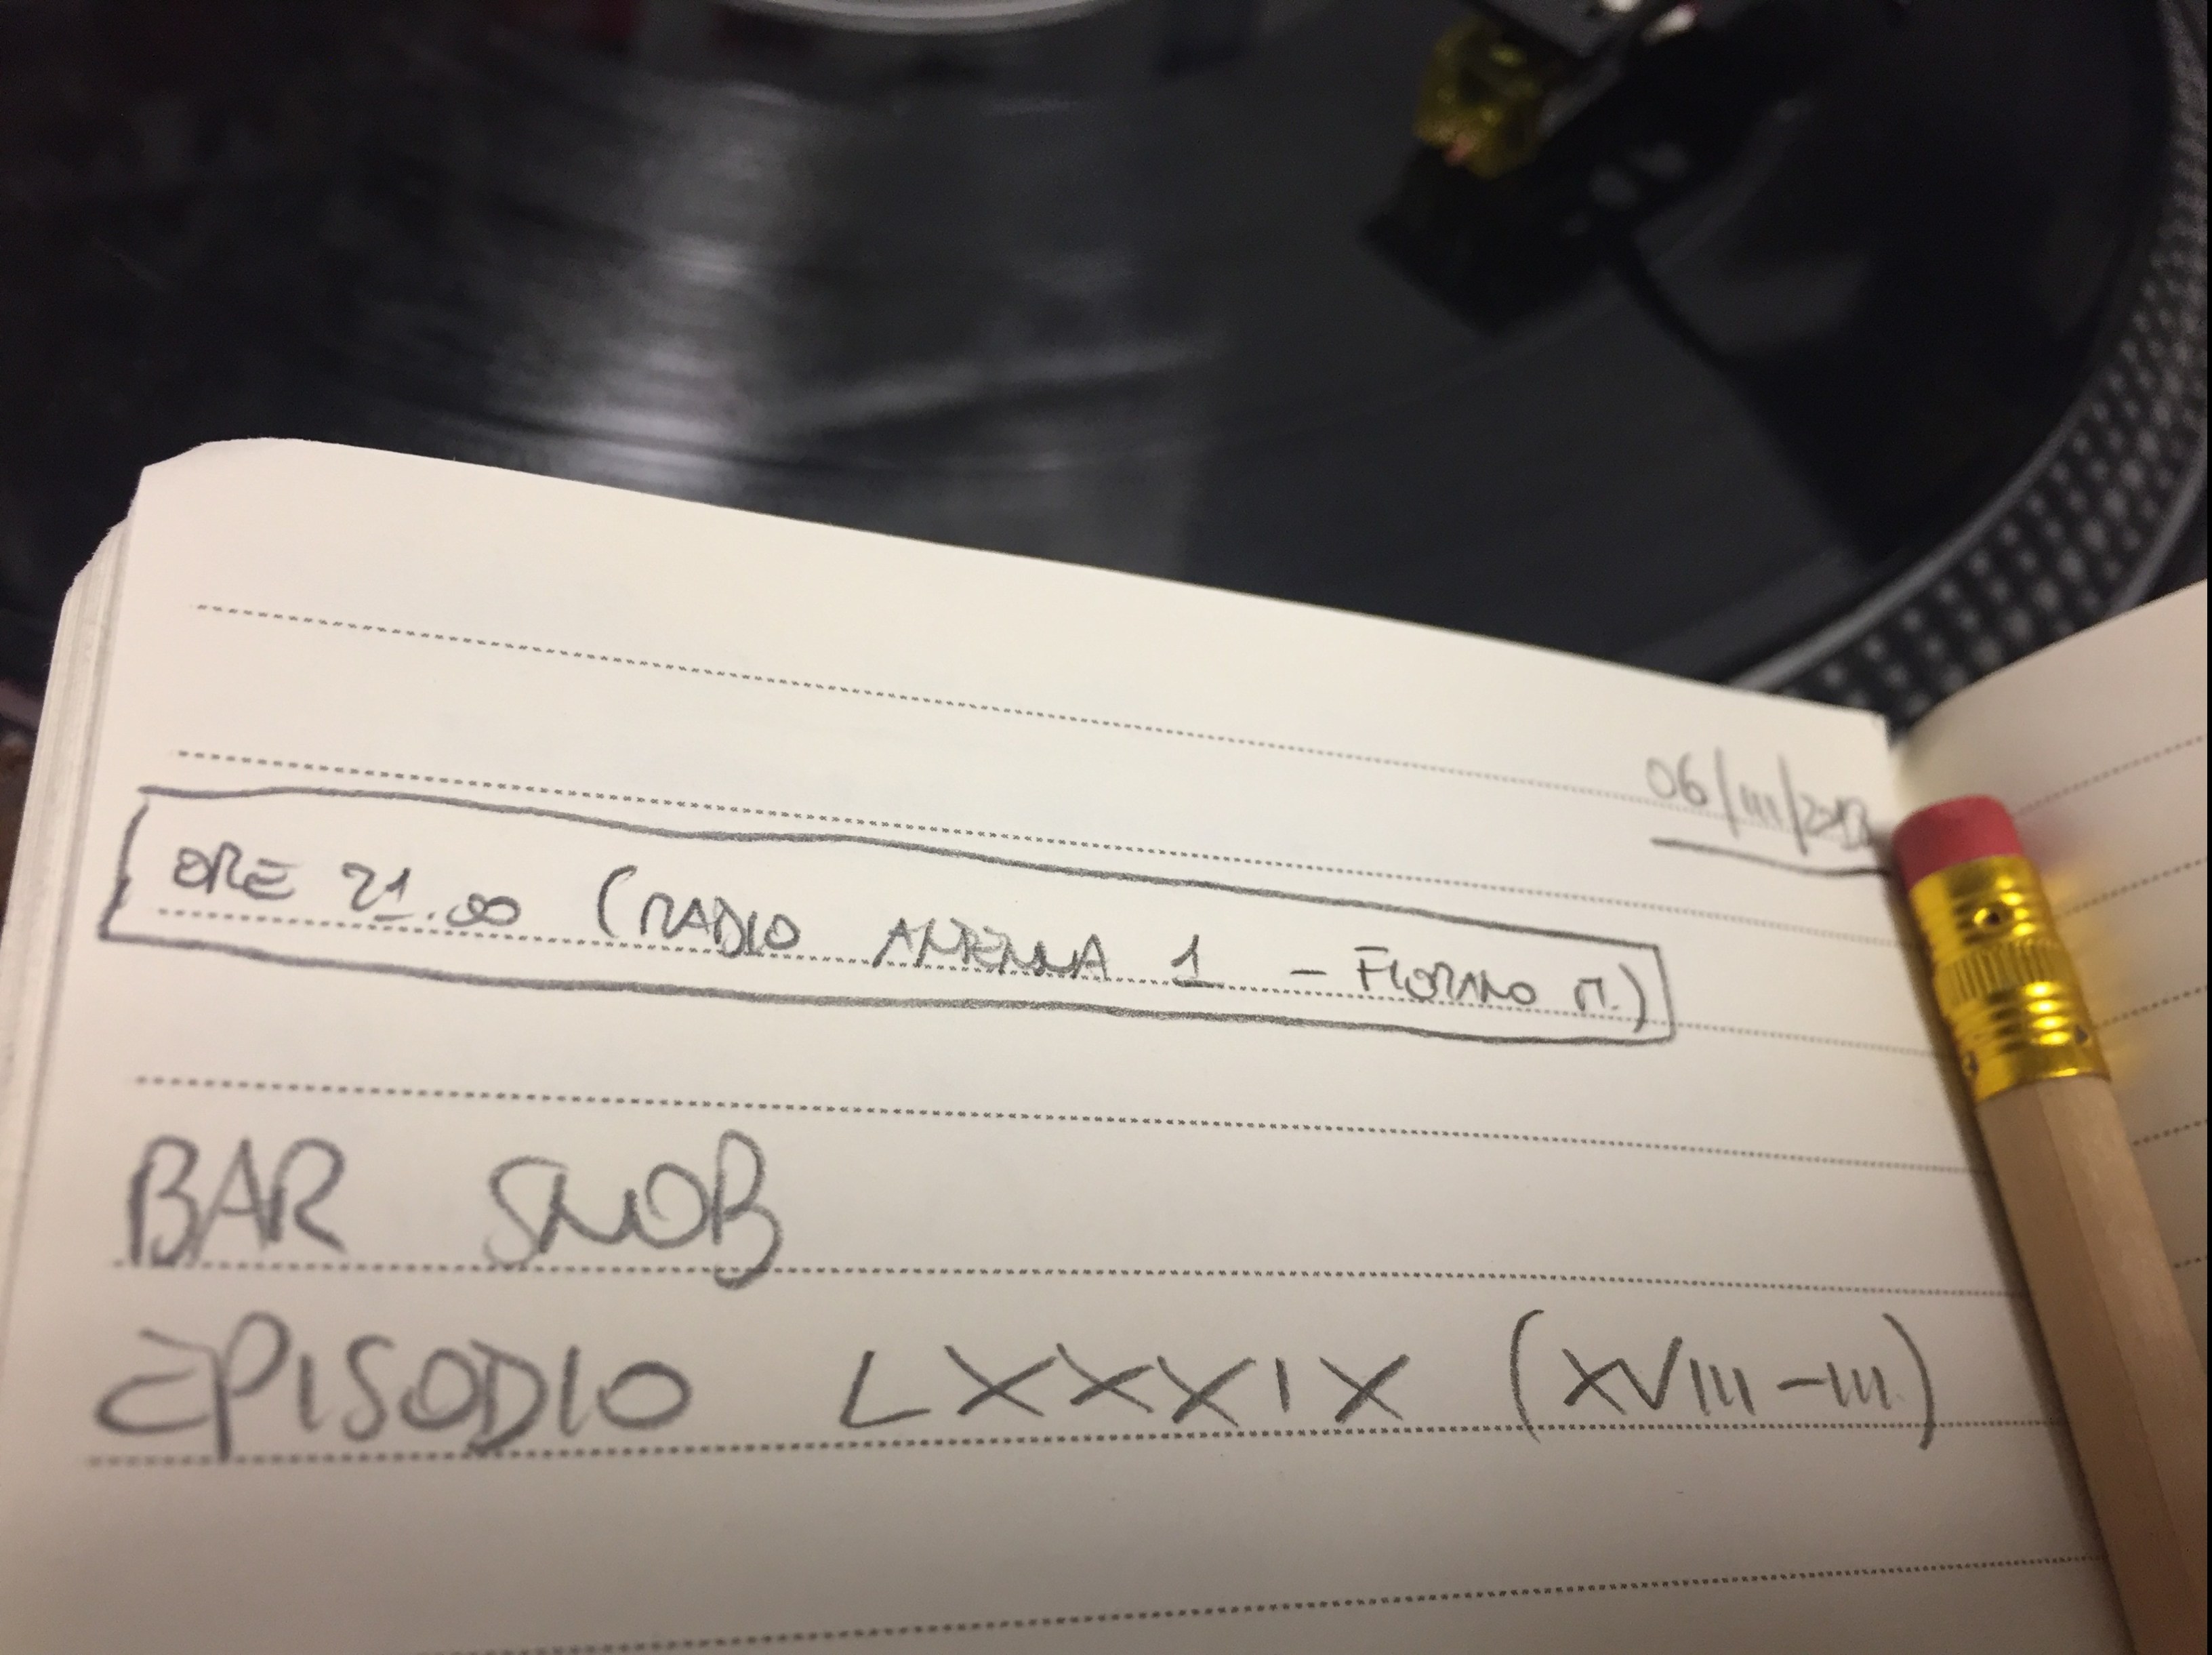 06/III/2018
ORE 21.00 (RADIO ANTENNA 1 - FIORANO M.)
BAR SNOB
EPISODIO LXXXIX (XVIII-III)